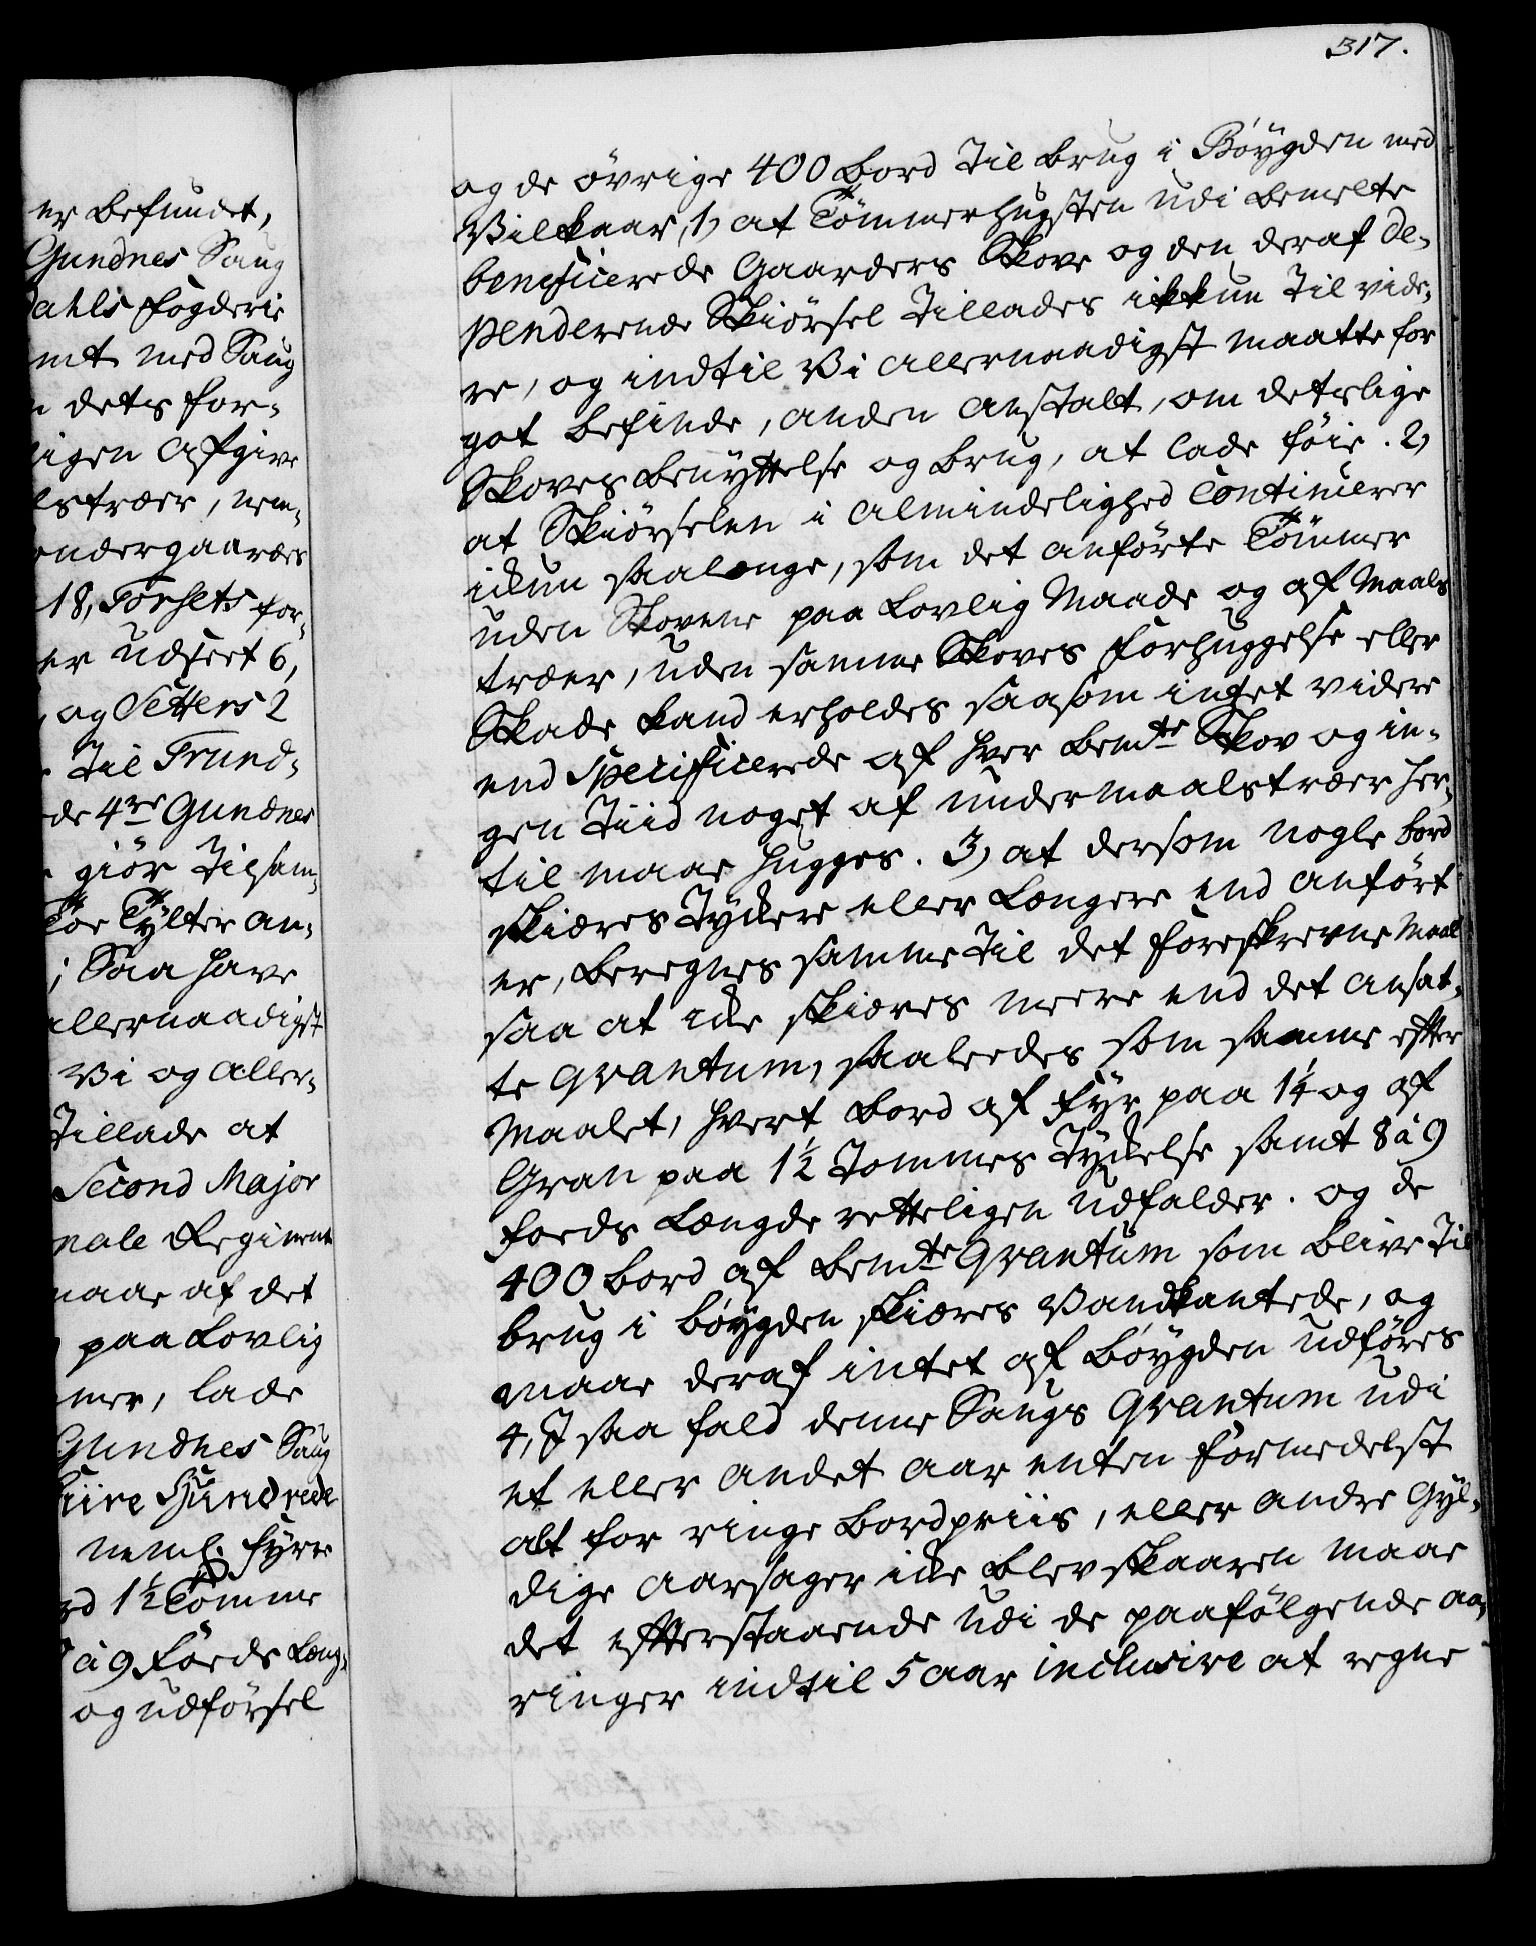 317.
er befundet,
Gundnes Saug
dahls Fogderie
mt med Saug
dets for-
igen Afgive
lstræer, nem-
ondergaardes
18, Forsets for-
er udseet 6,
og Setters 2
Til Trund-
de 4re Gundnes
giør Tilsam-
Toe Tylter an-
; Saa have
allernaadigst
Vi og Aller-
Tillade at
Second Major
nale Regiment
maae af det
paa Lovlig
mer, lade
Gundnes Saug
Fiire Hundrede
neml. fyrre
rd 1½ Tomme
à 9 Foeds Læng-
og udførsel
og de øvrige 400 Bord Til brug i Bøygden med
Vilkaar, 1, at Tømmerhugsten udi bemelte
beneficerede Gaarders Skove og den deraf de-
penderende Skiørsel Tillades ikkun Til vide-
re, og indtil Vi allernaadigst maatte for
got befinde, anden Anstalt, om deslige
Skoves benyttelse og brug, at lade føie. 2,
at Skiørselen i Almindelighed Continuerer
ickun saalænge, som det anførte Tømmer
uden Skovene paa Lovlig Maade og af Maals
træer, uden samme Skoves forhuggelse eller
Skade kand erholdes saasom intet videre
end Specificerede af hver bemte Skov og in-
gen Tiid noget af undermaalstræer her-
til maae hugges. 3, at dersom nogle bord
skiæres Tyckere eller Længere end anført
er, beregnes samme Til det foreskrevne Maal
saa at icke skiæres meere end det ansat-
te qvantum, saaleedes som samme efter
Maalet, hvert bord af Fyr paa 1¼ og af
Gran paa 1½ Tommes Tyckelse samt 8 à 9
foeds Længde retteligen udfalder. og de
400 bord af bemte Qvantum som blive Til
brug i bøygden skiæres Vandkantede, og
maae deraf intet af bøygden udføres
4, I saa fald denne Saugs Qvantum udi
et eller andet aar enten formedelst
alt for ringe bordpriis, eller andre Gyl-
dige Aarsager icke blev skaaren maae
det efterstaaende udi de paafølgende aa-
ringer indtil 5 aar inclusive at regne